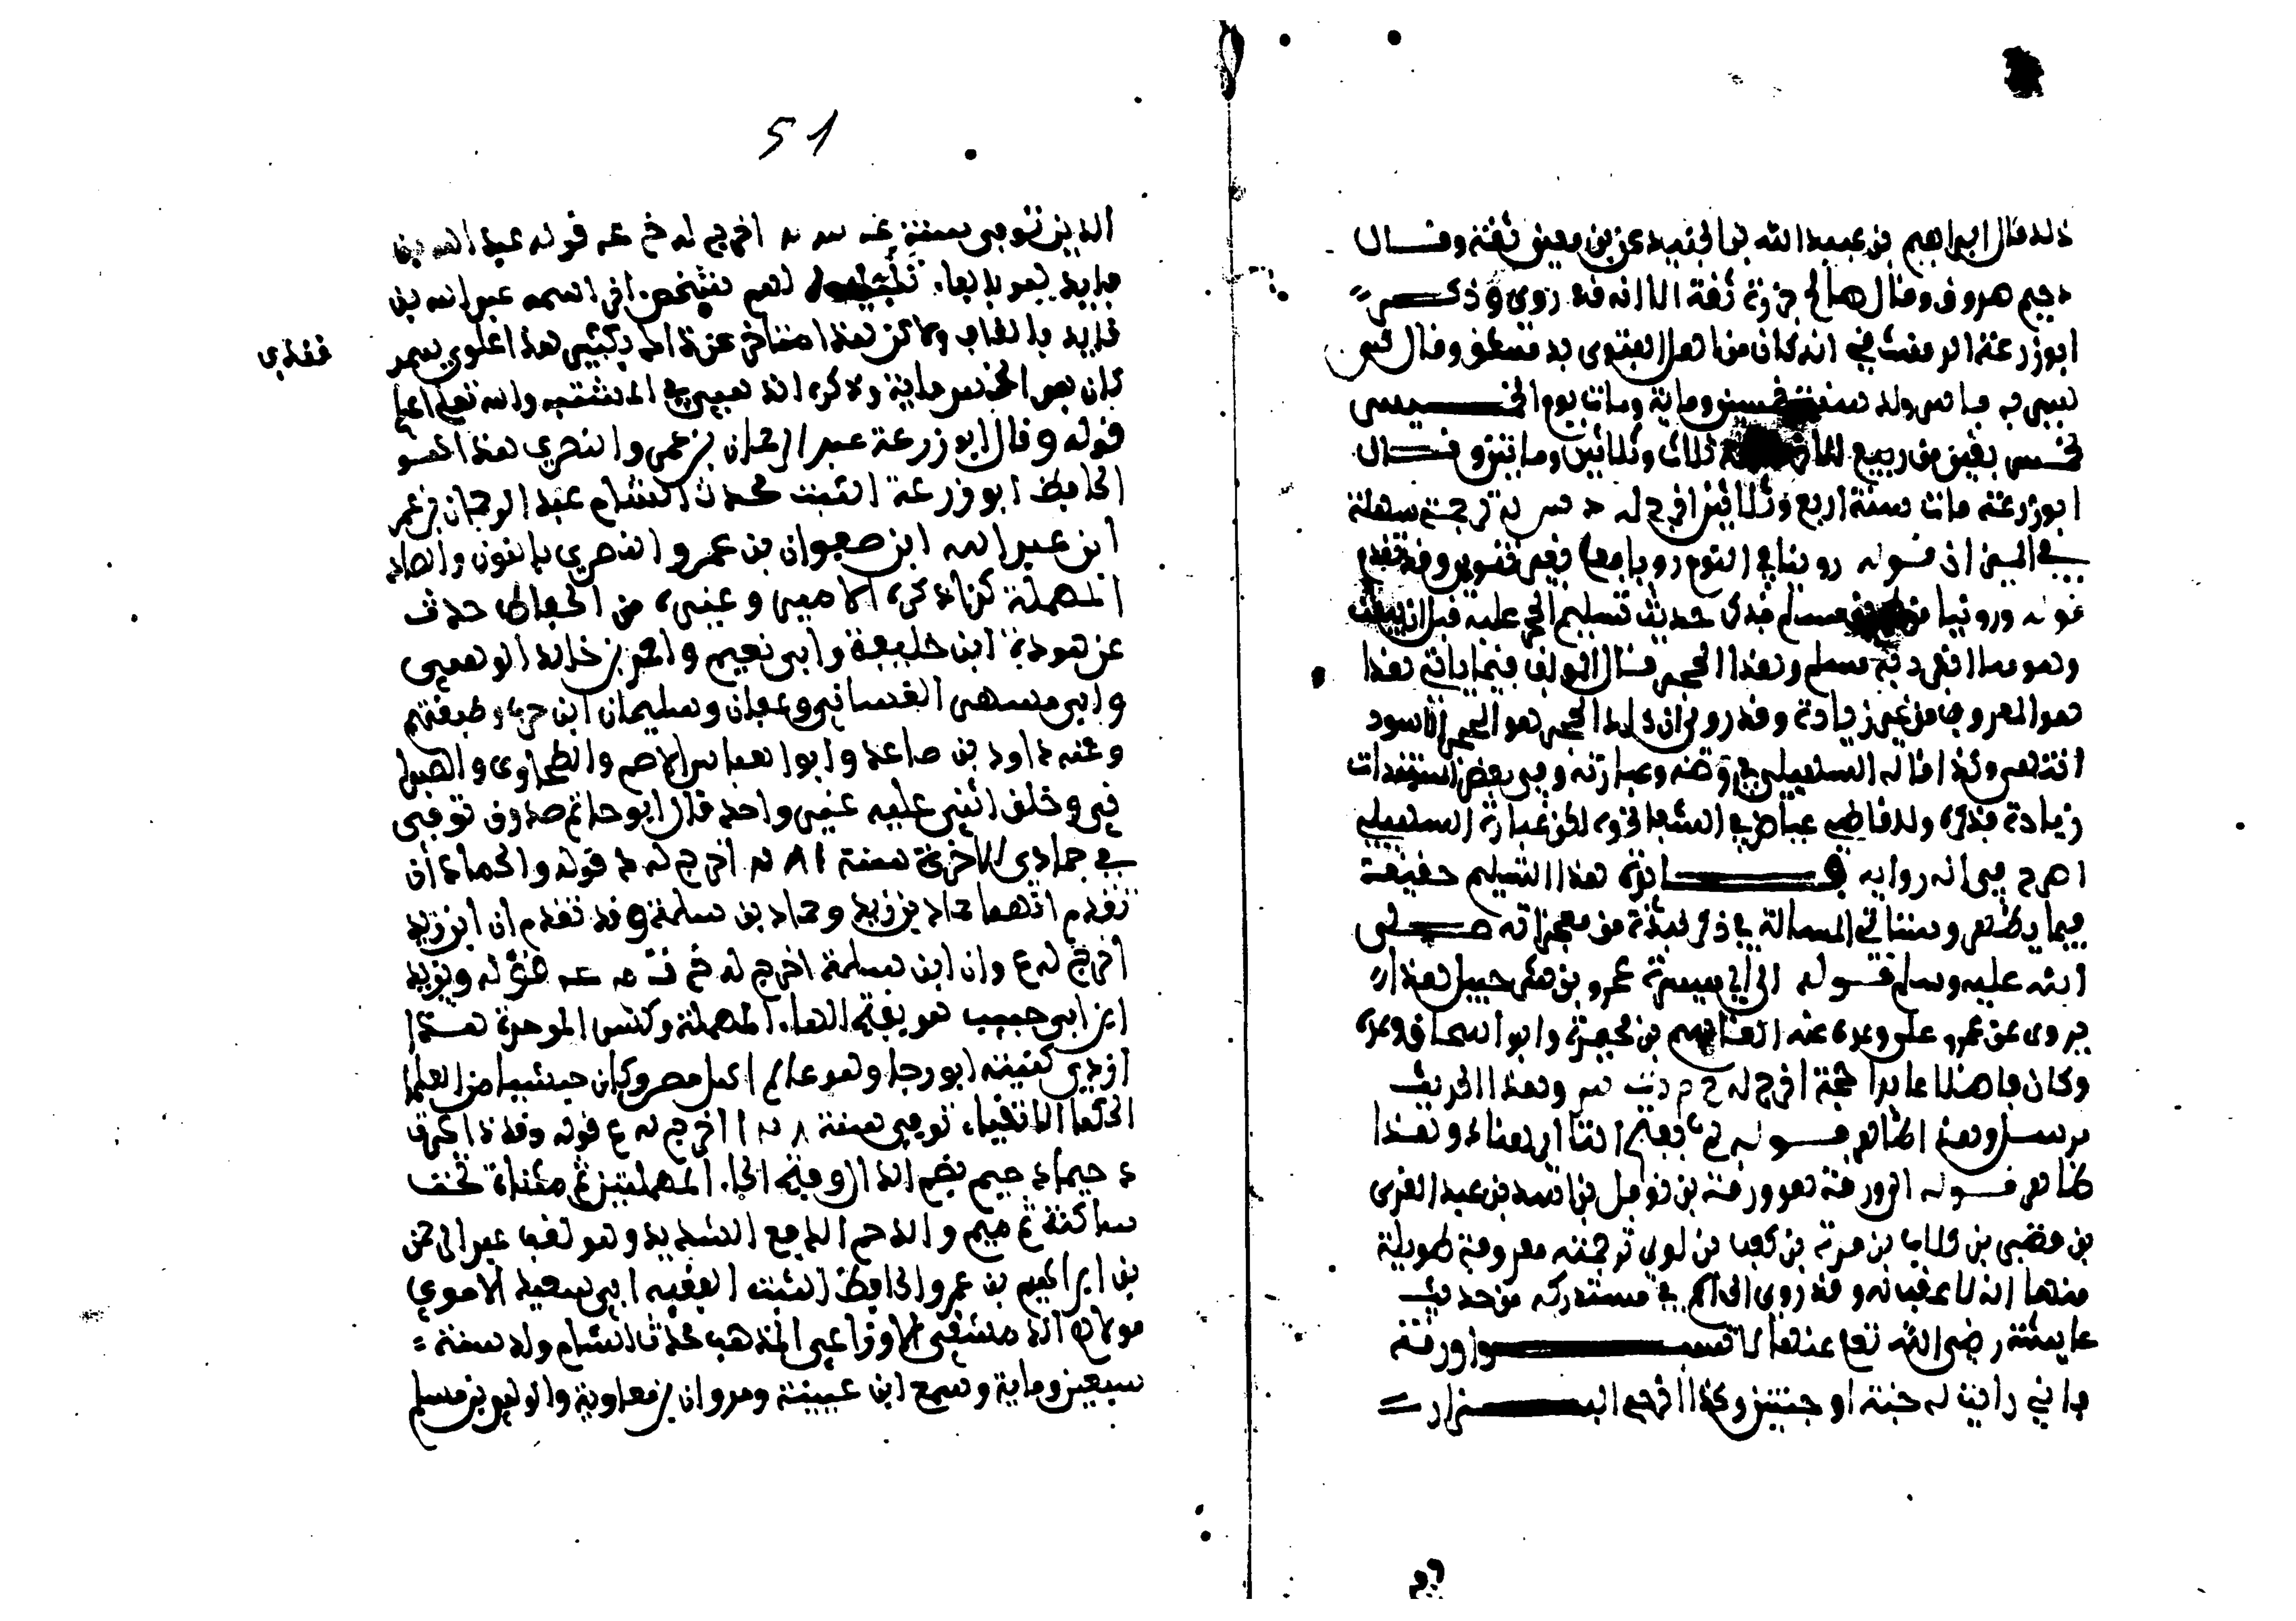 ذلك قال ابراهيم بن عبد الله بن الجنيد عن بن معين ثقة وقال
دحيم معروف وقال صالح جزرة ثقة الا انه قد روى وذكره
ابو زرعة الدمشقي انه كان من اهل الفتوى بدمشق وقال
ولد سنة خمسين وماية ومات يوم الخميس
لخمس بقين من ربيع ثلاث وثلاثين ومايتين وقال
ابو زرعة مات سنة اربع وثلاثين اخرج له د س ق ترجمته سهلة
في الميزان قوله روينا في النوم رويا معا فيه تقدم
قوله وروينا مسلم فذكر حديث تسليم الحجر عليه قبل ان يبعث
وهو مما انفرد به مسلم وهذا الحجر قال المولف فيما ياتي هذا
هو المعروف من غير زيادة وقد روي ان ذلك الحجر هو الحجر الاسود
انتهى وكذا قاله السهيلي في روضه وعبارته وفي بعض المسندات
زيادة فذكره ولفظ عياض في الشفا نحوه لكن عبارة السهيلي
اصرح في انه رواية فايدة هذا التسليم حقيقة
فيما يظهر وستاتي المسالة في ذكر نبذة من معجزاته صلى
الله عليه وسلم قوله الى ابي ميسرة عمرو بن شرحبيل هذا
يروي عن عمر وعلي وعدة عنه القاسم بن مخيمرة وابو اسحاق وعدة
وكان فاضلا عابدا حجة اخرج له خ م د ت س وهذا الحديث
مرسل وهذا الظاهر قوله ثم بفتح الثا اي هناك وهذا
ظاهر قوله الى ورقة هو ورقة بن نوفل بن اسد بن عبد العزى
بن قصي بن كلاب بن مرة بن كعب بن لوي ترجمته معروفة طويلة
منها انه لا عقب له وقد روى الحاكم في مستدركه من حديث
عايشة رضي الله تعا عنها لا تسبوا ورقة
فاني رايت له جنة او جنتين وكذا اخرجه البزار
51
الذين توفي سنة اخرج له خ قوله عبد الله بن
فايد هو بالفاء لهم شخص اخر اسمه عبد الله بن
قايد بالقاف ولاكن هذا متاخر عن ذاك بكثير هذا علوي يعمر
كان بعد الخمس ماية ذكره الذهبي في المشتبه والله تعلى اعلم
فقدي
قوله وقال ابو زرعة عبد الرحمان بن عمرو النصري هذا هو
الحافظ ابو زرعة الثبت محدث الشام عبد الرحمان بن عمرو
ابن عبد الله ابن صفوان بن عمرو النصري بالنون والصاد
المهملة كما ذكره الامير وغيره من الحفاظ حدث
عن هوذة ابن خليفة وابي نعيم واحمد بن خالد الوهبي
وابي مسهر الغساني وعفان وسليمان ابن حرب وطبقتهم
وعنه داود بن صاعد وابو العباس الاصم والطحاوي والطبرا
ني وخلق اثنى عليه غير واحد قال ابو حاتم صدوق توفي
في جمادى الاخرة سنة ٢٨١ اخرج له د قوله والحمادان
تقدم انهما حماد بن زيد وحماد بن سلمة وقد تقدم ان ابن زيد
اخرج له ع وان ابن سلمة اخرج له قوله ويزيد
ابن ابي حبيب هو بفتح الحا المهملة وكسر الموحدة هذا
ازدي كنيته ابو رجا وهو عالم اهل مصر وكان حبشيا من العلما
الحكما الاتقياء توفي سنة اخرج له ع قوله وقد ذاكرت
دحيما دحيم بضم الدال وفتح الحا المهملتين ثم مثناة تحت
ساكنة ثم ميم والدحم الدفع الشديد وهو لقب عبد الرحمن
بن ابراهيم بن عمرو الحافظ الثبت الفقيه ابي سعيد الاموي
مولاهم الدمشقي الاوزاعي المذهب محدث الشام ولد سنة
سبعين وماية وسمع ابن عيينة ومروان بن معاوية والوليد بن مسلم